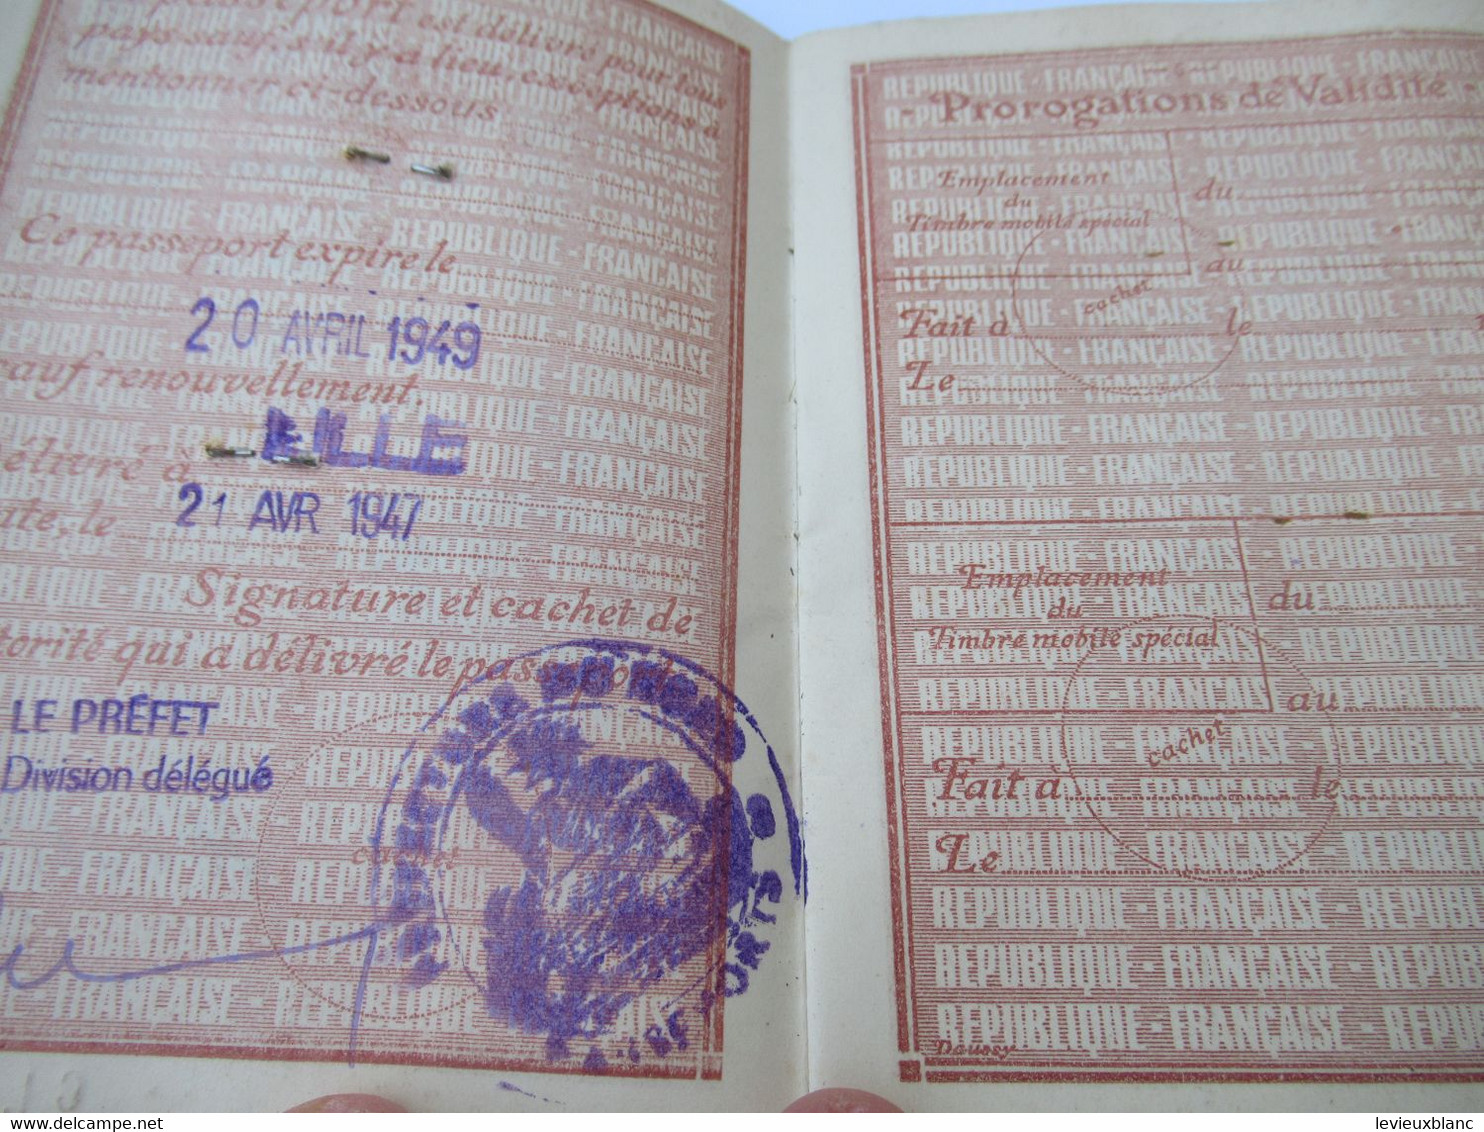 passeport est délivré pour tous
pays sauf, s'il y a lieu, exceptions à
mentionner ci-dessous
Ce passeport expire le
20 AVRIL 1949
sauf renouvellement.
LILLE
délivré à
21 AVR 1947
date, le
Signature et cachet de
torité qui a délivré le passeport
LE PRÉFET
Division délégué
cachet
13
- Prorogations de Validité -
Emplacement
du
Timbre mobile spécial
du
au
cachet
Fait à
le
Le
Emplacement
du
Timbre mobile spécial
du
au
cachet
Fait à
le
Le
RÉPUBLIQUE - FRANÇAISE - RÉPUBLIQUE
Daussy
delcampe.net
levieuxblanc